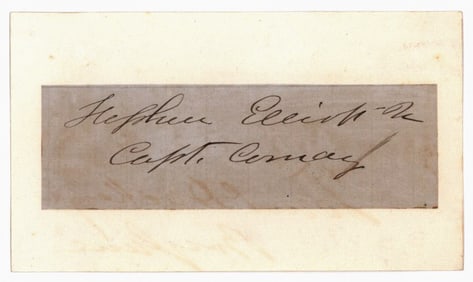 Stephen Elliott Jr
Capt. Comdg